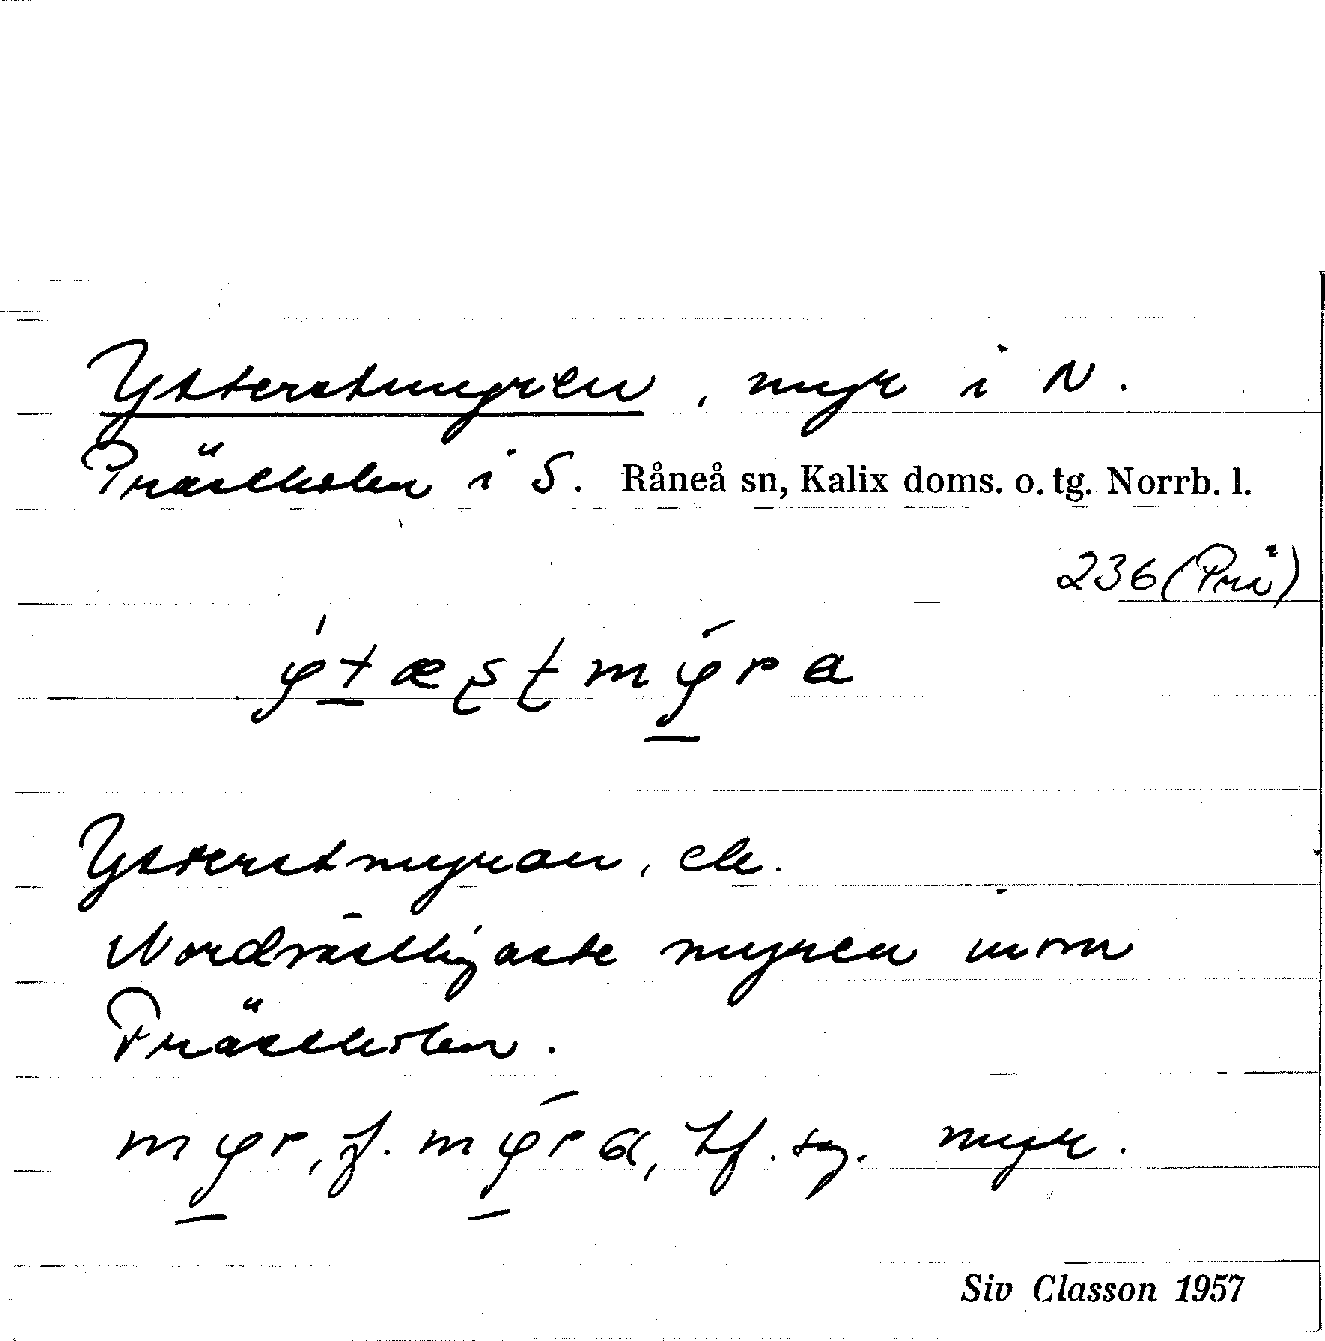 Ytterstmyren, myr i N.
Prästholm i S. Råneå sn, Kalix doms. o. tg. Norrb. l.
236 (Prä)
Ytterstmyran, ek.
Nordvästligaste myren inom
Prästholm.
myr.
Siv Classon 1957